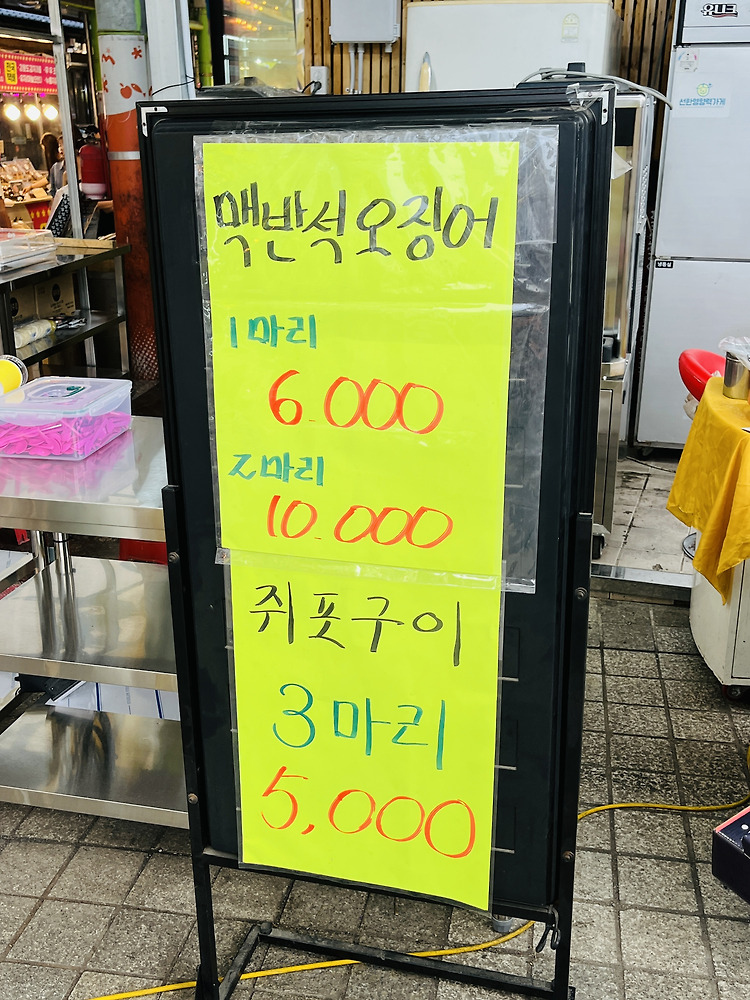 맥반석오징어
1마리
6.000
2마리
10.000
쥐폿구이
3마리
5,000
유니크